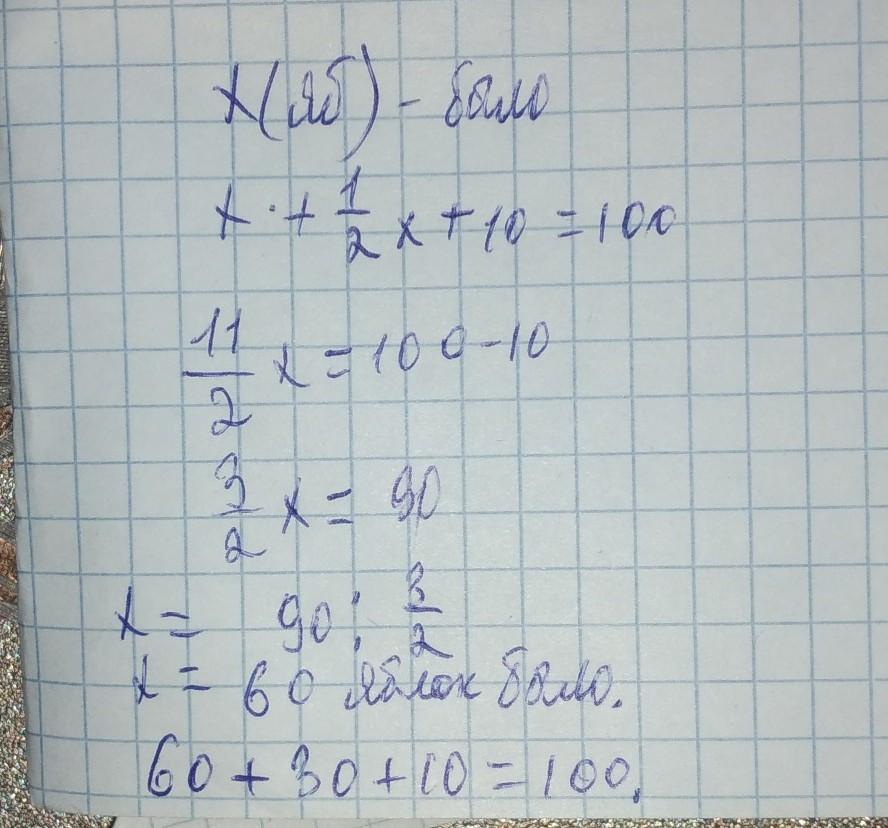 x(яб) - было
x · + 1/2 x + 10 = 100
11/2 x = 100 - 10
3/2 x = 90
x = 90 : 3/2
x = 60 яблок было.
60 + 30 + 10 = 100.